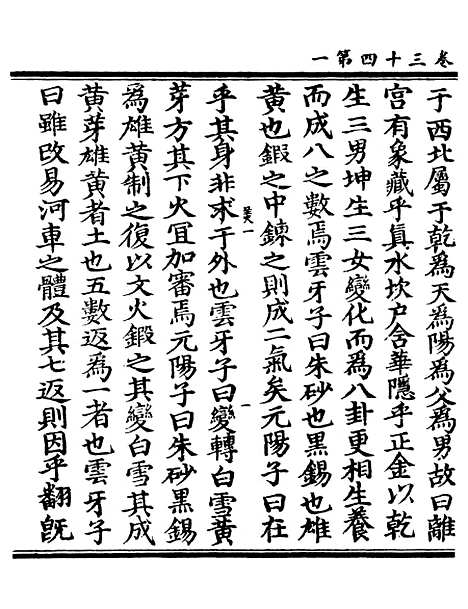 卷三十四第一
于西北屬于乾為天為陽為父為男故曰離
宮有象藏乎真水坎户含華隱乎正金以乾
生三男坤生三女變化而為八卦更相生養
而成八之數焉雲牙子曰朱砂也黑錫也雄
黄也鍜之中鍊之則成二氣矣元陽子曰在
乎其身非求于外也雲牙子曰變轉白雪黄
芽方其下火冝加審焉元陽子曰朱砂黑錫
為雄黄制之復以文火鍜之其變白雪其成
黄芽雄黄者土也五數返為一者也雲牙子
曰雖改易河車之體及其七返則因乎翻旣